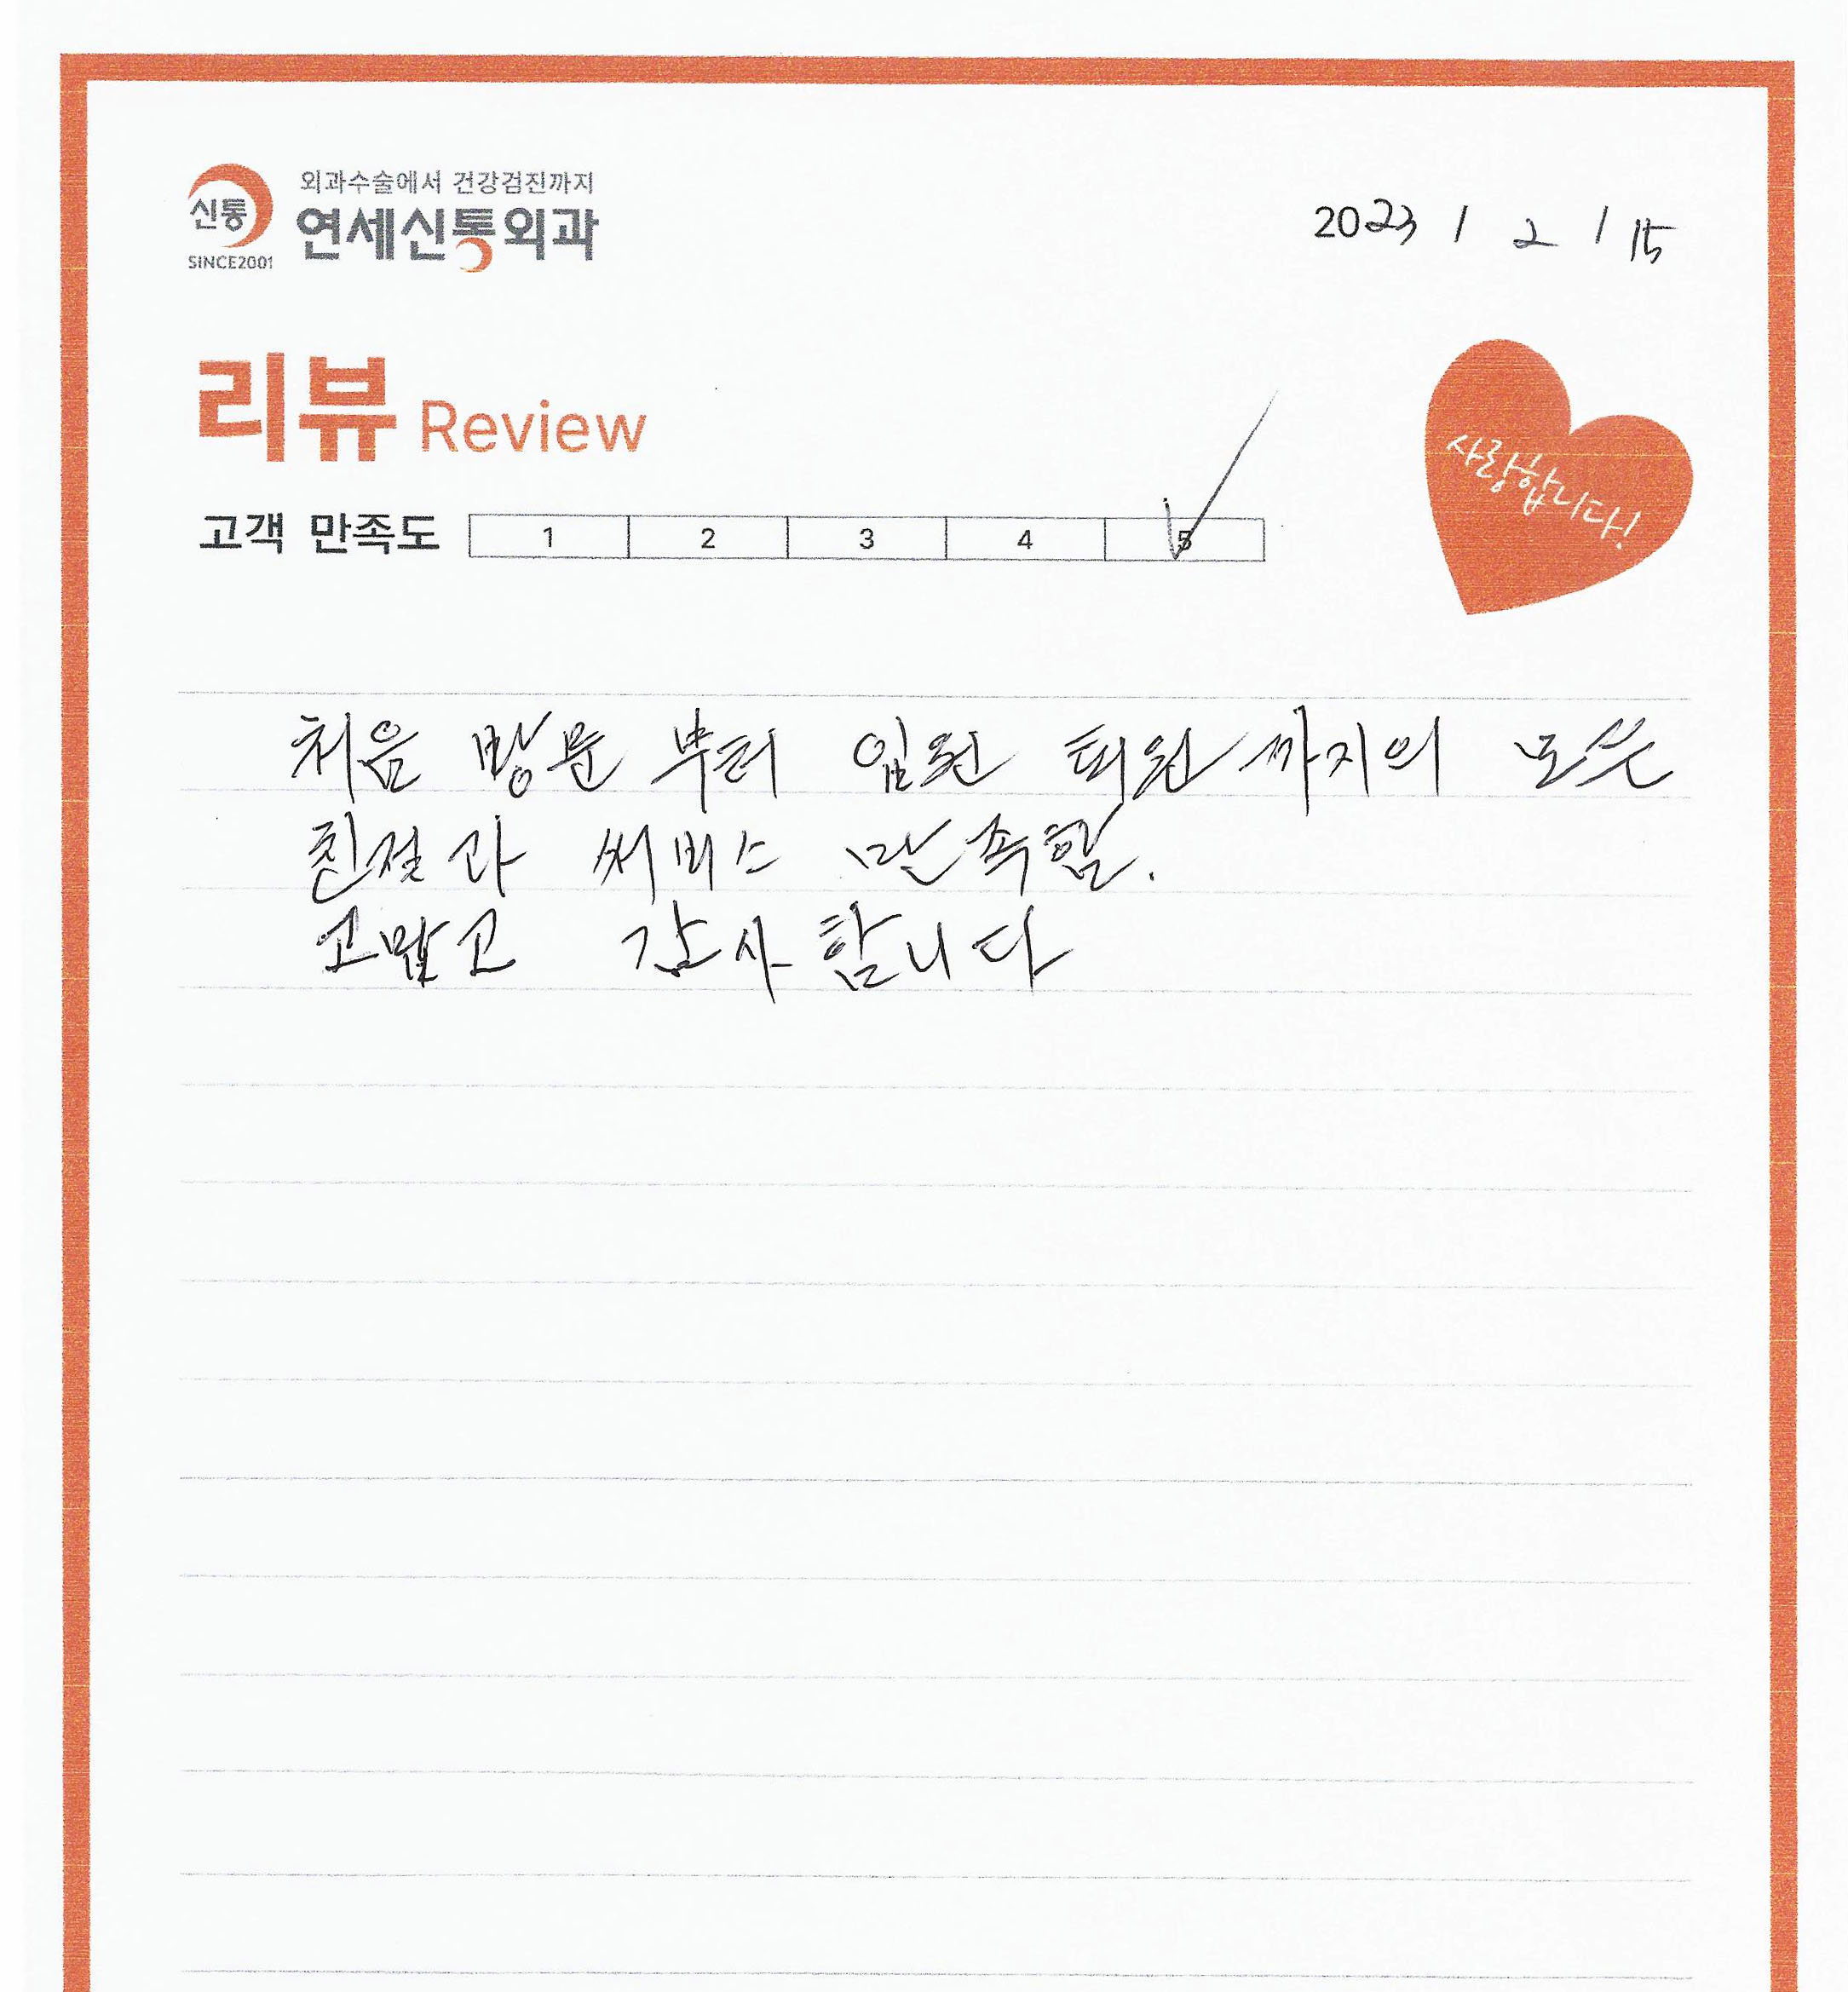 외과수술에서 건강검진까지
신통 연세신통외과
SINCE2001
2023 / 2 / 15
리뷰 Review
사랑합니다!
고객 만족도 1 2 3 4 5
처음 방문 부터 입원 퇴원 까지의 모든
친절과 써비스 만족함.
고맙고 감사합니다